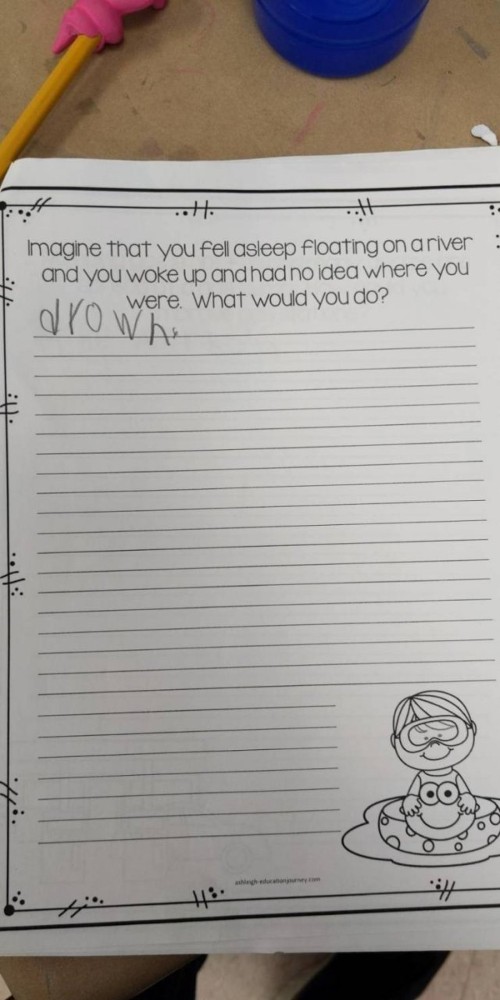 Imagine that you fell asleep floating on a river
and you woke up and had no idea where you
were. What would you do?
drown.
ashleigh-educationjourney.com